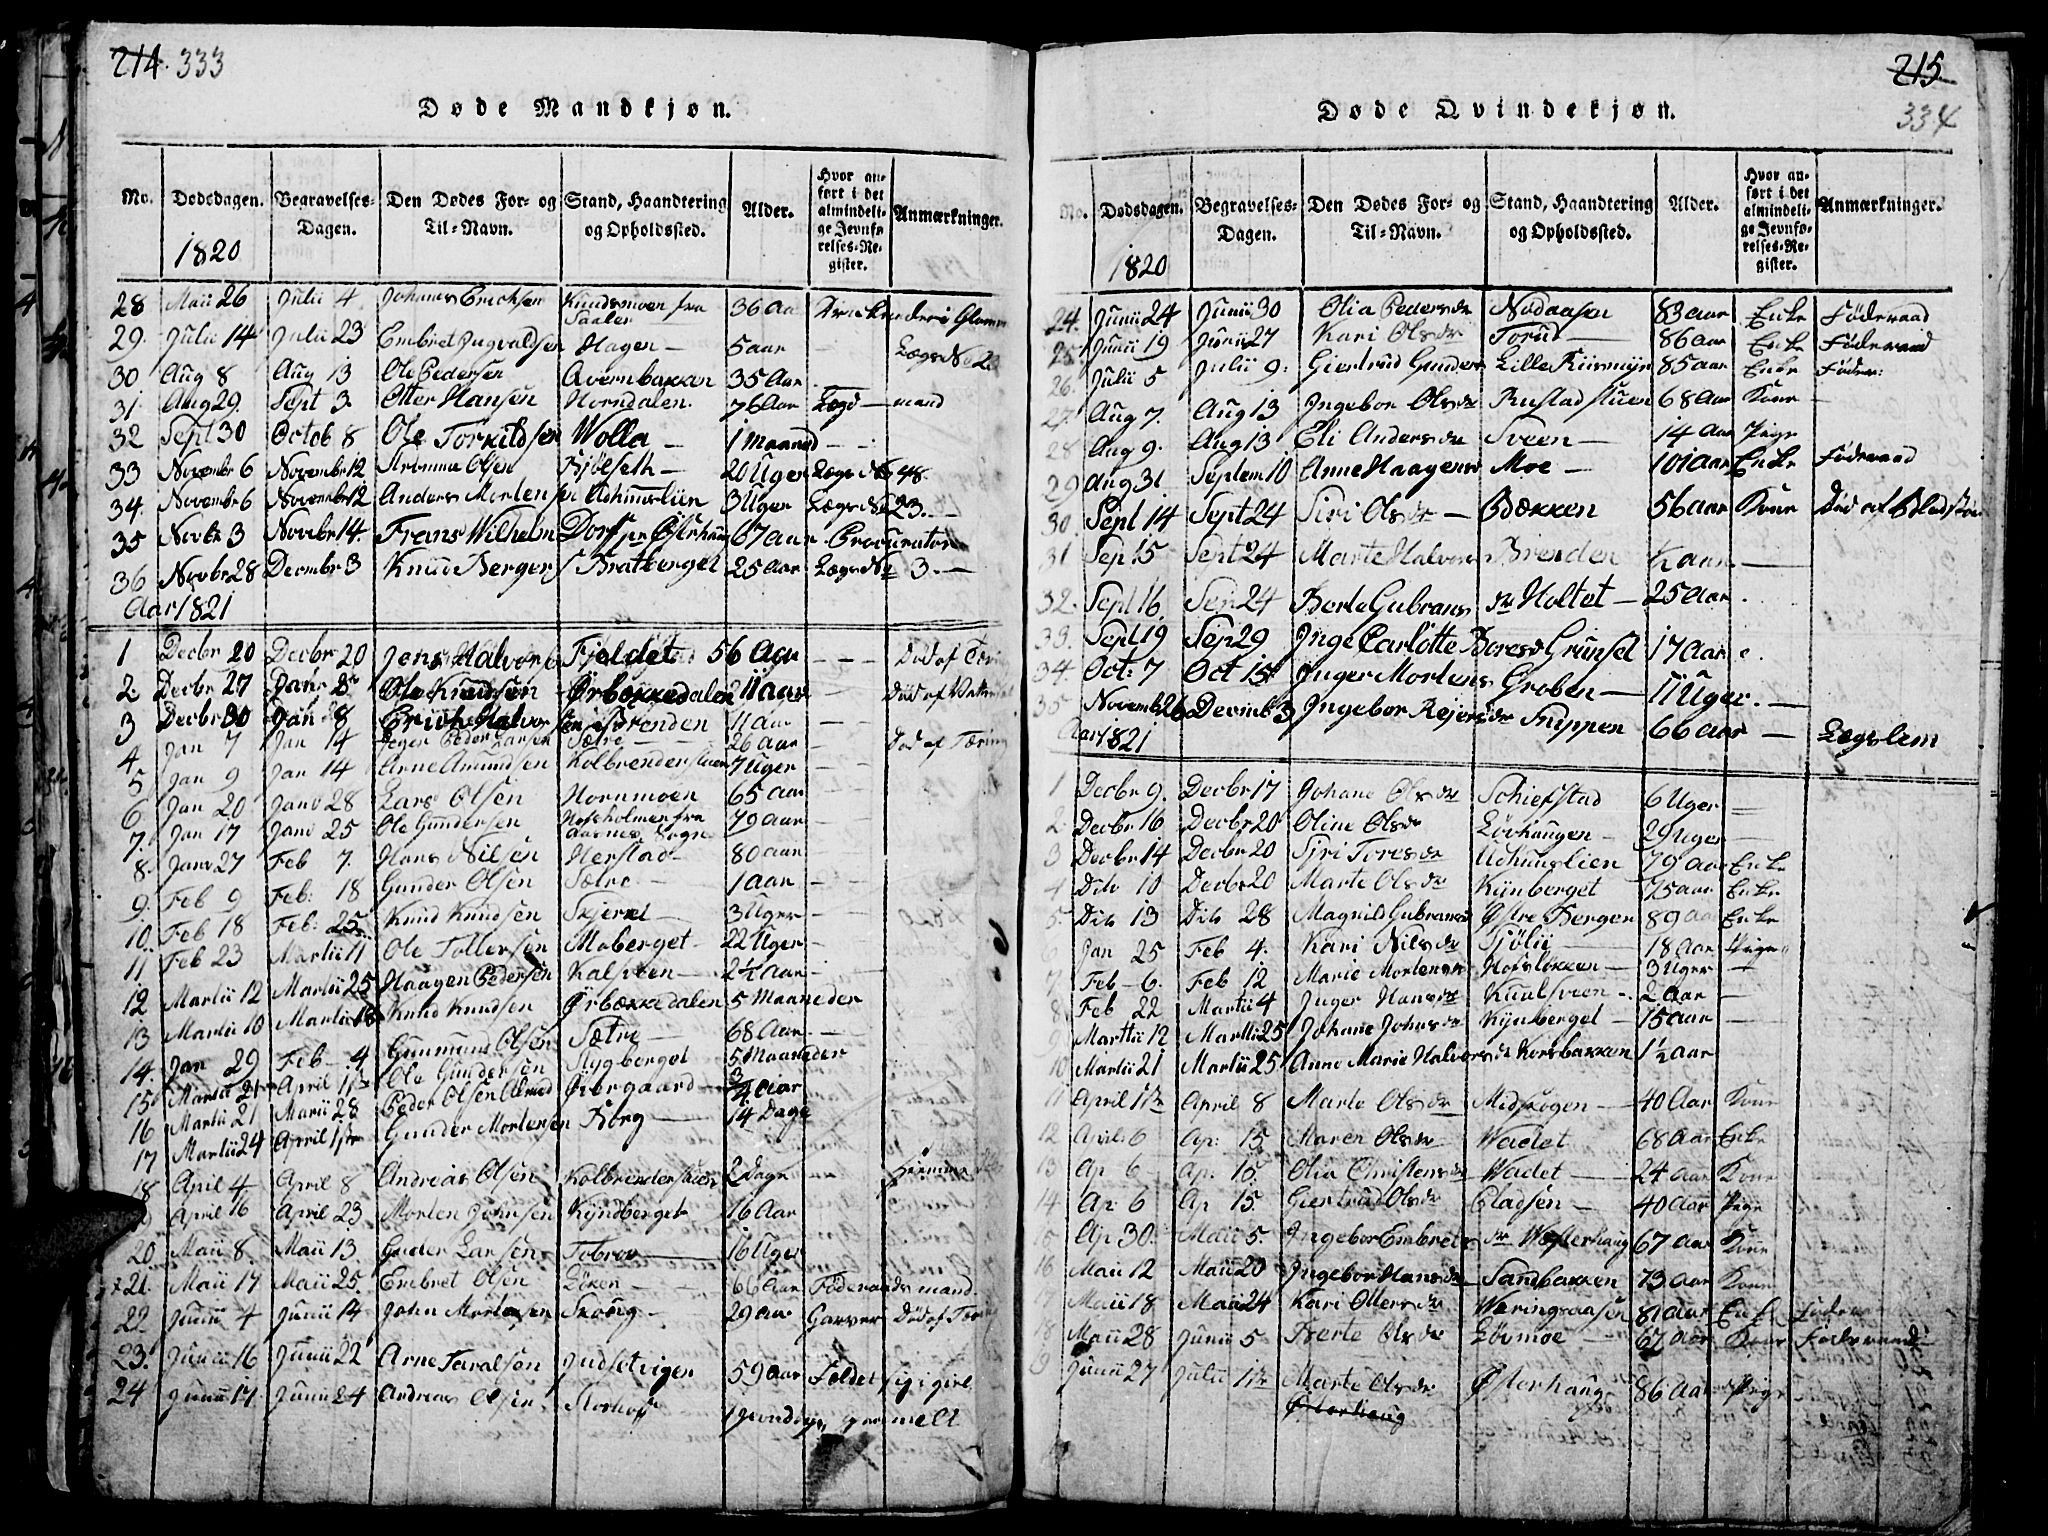 214. 333
Døde Mandkjøn.
No. Dødsdagen. Begravelses-Dagen. Den Dødes For- og Til-Navn. Stand, Haandtering og Opholdssted. Alder. Hvor anført i det almindelige Jevnførelses-Register. Anmærkninger.
1820
28 Maii 26 Julii 4 Johannes Erichsen Knudsmoen fra Saaler 36 Aar i Glom
29. Julii 14 Julii 23 Embret Ingvaldsen Hagen 5 aar Lægs No 2
30 Aug 8 Aug 13 Ole Pedersen Avernbakken 35 Aar
31 Aug 29. Sept 3 Otter Hansen Horndalen. 76 Aar Lægd mand
32 Sept 30 Octob 8 Ole Torkildsen Wolla 1 maaned
33 Novembr 6 Novembr 12 Strømme Olsen Kjølseth 20 Uger Lægs No 48.
34. Novembr 6 Novembr 12 Anders Mortensen Uchuuslien 3 Uger Lægs No 23.
35 Novbr 3 Novbr 14. Frans Wilhelm Dorf 67 aar Procurator
36 Novbr 28 Decmbr 3 Knud Bergers Bratberget 25 aar Lægs No 3.
Aar 1821
1 Decbr 20 Decbr 20 Jens Halvors Fjeldet 56 Aar Død af Tæring
2. Decbr 27 Janr Ole Knudsen Ørbækkedalen 2 11 aar Død af
3 Decbr 30 Jan 8 Erich Halvorsen Brenden 11 aar
4 Jan 7 Jan 14 Peder Larsen Sætre 26 aar Død af Tæring
5 Jan 9 Jan 14 Arne Amundsen Kolbrenderstuen 7 Uger
6 Jan 20 Janv 28 Lars Olsen Hornmoen 65 aar
7. Jan 17 Janv 25 Ole Gundersen Hofsholmen fra Aasnes Sogn 79 aar
8. Janv 27 Feb 7. Hans Nilsen Herstad 80 aar
9. Feb 9 Feb: 18 Gunder Olsen Sætre 1 aar
10. Feb 18 Feb: 25 Knud Knudsen Skjeret 3 Uger
11. Feb 23 Martii 11 Ole Tollersen Moberget 22 Uger
12 Martii 12 Martii 25 Haagen Pedersen Kalveen 2½ aar
13 Martii 10 Martii 18 Knud Knudsen Ørbækkedalen 5 Maaneder
14. Jan 29 Feb 4 Gunmund Olsen Sætre 68 Aar
15. Martii 21 April 1ste Ole Gundersen Stygberget 5 Maaneder
16 Martii 21 Martii 28 Peder Olsen Øvergaard ¾ aar
17 Martii 24 April 1ste Gunder Mortensen Borg 14 Dage
18 April 4 April 8 Andreas Olsen Kolbrenderstuen 2 Dage
April 16 April 23 Morten Johnsen Kyndberget 16 Aar
20 Maii 8. Maii 13 Gunder Larsen Tobroe 16 Uger
×21. Maii 17 Maii 25. Embret Olsen Løken 66 Aar Føderaads mand
22 Junii 4 Junii 14 John Mortensen Skoug 29 aar Garver Død af Tæring
23. Junii 16 Junii 22 Arne Taralsen Jndsetvigen 59 aar
24 Junii 17. Junii 24 Andreas Olsen Storhof

215
334
Døde Qvindekjøn.
No. Dødsdagen. Begravelses-Dagen. Den Dødes For- og Til-Navn. Stand, Haandtering og Opholdssted. Alder. Hvor anført i det almindelige Jevnførelses-Register. Anmærkninger.
1820
24. Junii 24 Junii 30 Olia Pedersdr Nodaasen 83 aar Enke Føderaad
25. Junii 19 Junii 27 Kari Olsdr Torud 86 aar Enke Føderaad
26. Julii 5 Julii 9. Giertrud Gunders Lille Kiirmyr 85 aar Enke Føder:
27. Aug 7. Aug 13 Ingebor Olsdr Rustadstuen 68 Aar Kone
28 Aug 9. Aug 13 Eli Andersdr Sveen 14 Aar Pige
29 Aug 31 Septem 10 Anne Haagens Moe 101 aar Enke Føderaad
30. Sept 14 Sept 24 Siri Olsdr Bækken 56 aar Kone Død af Blodstør
31 Sep 15 Sept 24 Marte Halvors Brenden aar
32. Sept 16. Sep 24 Berte Gubrans dr Holtet 25 Aar
33. Sept 19 Sep 29 Inge Carlotte Boresdr Grunset 17 aar
34. Oct: 7 Oct 15 Inger Mortens Groben 11 Uger.
35 Novemb 26 Decmb 3 Ingebor Rejersdr Snippen 66 aar Lægslem
Aar 1821
1 Decbr 9. Decbr 17 Johane Olsdr Schiefstad 6 Uger
2. Decbr 16 Decbr 20 Oline Olsdr Løvhaugen 29 Uger
3 Decbr 14 Decbr 20 Sjri Toresdr Uchuuslien 79 aar Enke
4 Dito 10 Decbr 20 Marte Olsdr Kynberget 75 aar Enke
5. Dito 13 Dito 28 Magnild Gubrans Østre Berger 89 Aar Enke
6 Jan 25 Feb 4. Kari Nilsdr Sjølii 18 Aar Pige
7 Feb 6. Feb 12 Marie Mortensdr Hofsløkken 3 Uger
8. Feb 22 Martii 4 Inger Hansdr Kuulsveen 2 aar
9 Martii 12 Martii 25 Johane Johnsdr Kynberget 15 aar
10 Martii 21 Martii 25 Anne Marie Halvorsdr Korsbakken 1½ aar
11 April 1ste April 8 Marte Olsdr Midskogen 40 Aar Kone
12 April 6 Ap: 15 Maren Olsdr Wadet 68 aar Enke
13 Ap 6 Ap. 15. Olia Christensdr Wadet 24 aar Kone
14 Ap: 6 Ap 15. Giertrud Olsdr Gladsøn 40 Aar Pige
15 Ap: 30. Maii 5 Ingebor Embrets dr Westerhaug 67 Aar Kone
16 Maii 12 Maii 20 Ingebor Hansdr Sandbakken 73 aar Kone
Maii 18 Maii 24 Kari Ottersdr Wæringsaasen 81 aar Enke Føderaad
18 Maii 28 Junii 5 Berte Olsdr Løvmoe 67 aar Kone Føderaad
19 Junii 27 Julii 1ste Marte Olsdr Østerhaug 86 Aar Pige
Østerhaug